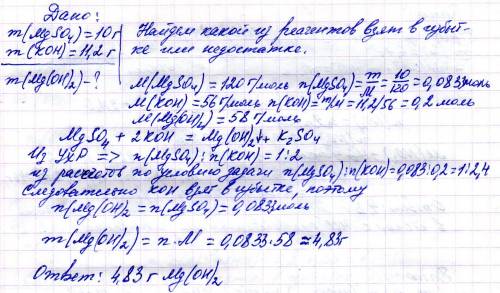 Дано:
m(MgSO₄)=10г
m(KOH)=11,2г
m(Mg(OH)₂)-?
Найдем какой из реагентов взят в избыт-
ке или недостатке.
M(MgSO₄)=120 г/моль n(MgSO₄)=m/M=10/120=0,083моль
M(KOH)=56 г/моль n(KOH)=m/M=11,2/56=0,2 моль
M(Mg(OH)₂)=58 г/моль
MgSO₄ + 2KOH = Mg(OH)₂↓+ K₂SO₄
Из УХР => n(MgSO₄):n(KOH)=1:2
из расчетов по условию задачи n(MgSO₄):n(KOH)=0,083:0,2=1:2,4
Следовательно KOH взят в избытке, поэтому
n(Mg(OH)₂=n(MgSO₄)=0,0833моль
m(Mg(OH)₂)=n·M=0,0833·58≈4,83г
Ответ: 4,83 г Mg(OH)₂